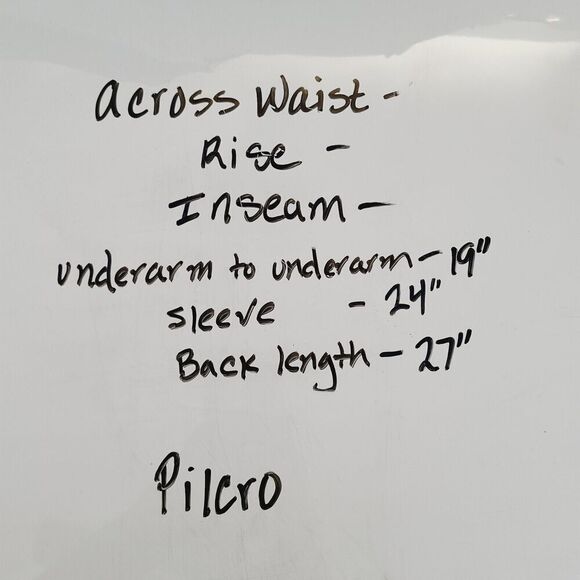 Across Waist -
Rise -
Inseam -
underarm to underarm - 19"
sleeve - 24"
Back length - 27"
Pilcro